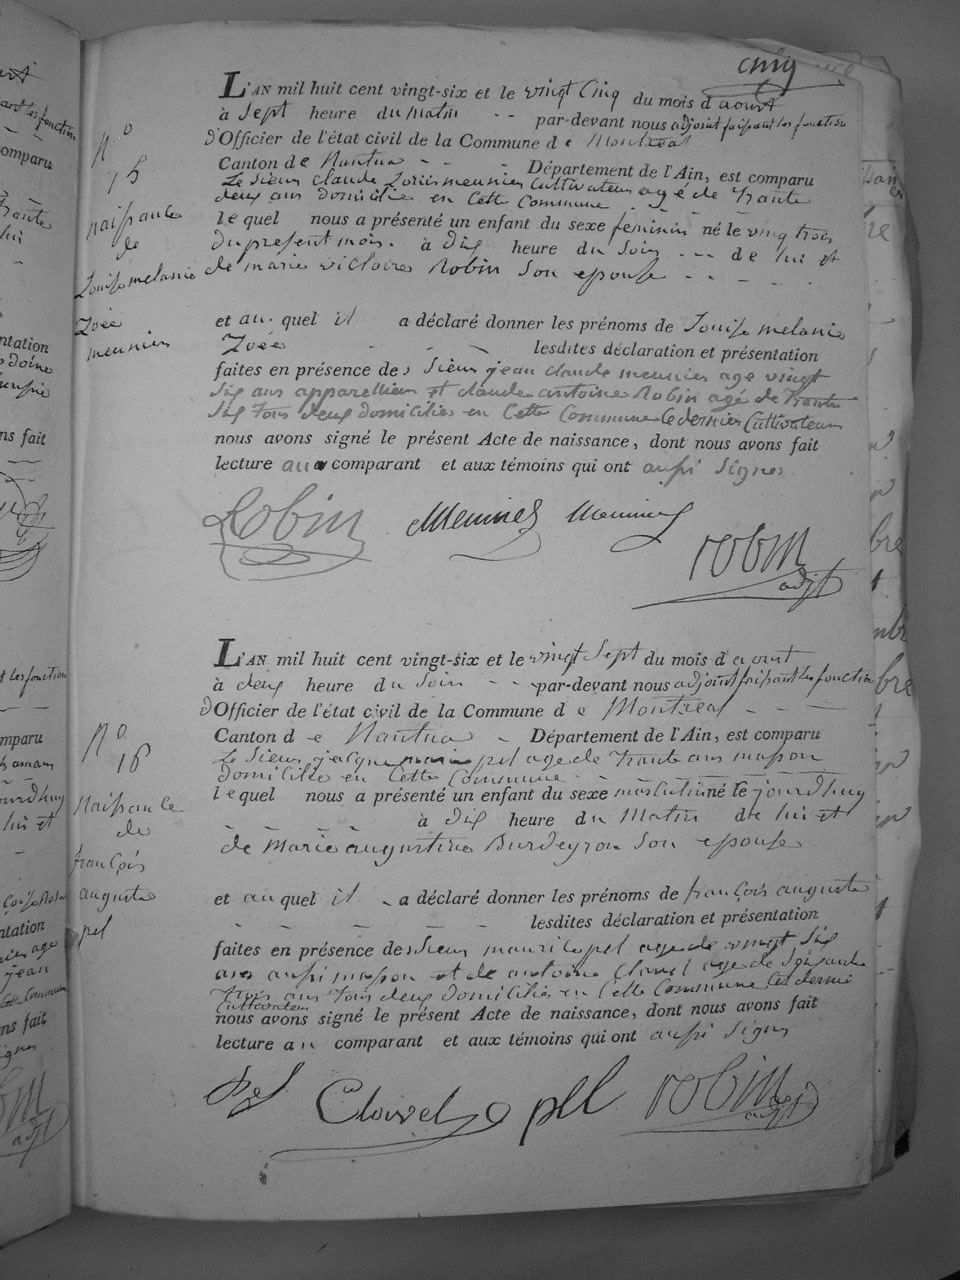 cinq
L'AN mil huit cent vingt-six et le vingt Cinq du mois d'aoust
à Sept heure du matin - - par-devant nous adjoint faisant les fonction
d'Officier de l'état civil de la Commune d e Montreal
Canton de Nantua - - - Département de l'Ain, est comparu
Le Sieur Claude Louis meunier Cultivateur agé de Trante
deux ans domicilié en Cette Commune
lequel nous a présenté un enfant du sexe feminin né le vingt trois
Du present mois. à dix heure du Soir - - - de lui et
de marie victoire Robin Son epouse - - - - -
et au quel il a déclaré donner les prénoms de Louise melanie
Zoée - - - lesdites déclaration et présentation
faites en présence des Sieur jean claude meunier age vingt
Six ans appareilleur et claude antoine Robin agé de Trante
Six Tous deux domiciliés en Cette Commune le dernier Cultivateur
nous avons signé le présent Acte de naissance, dont nous avons fait
lecture au comparant et aux témoins qui ont aussi Signes
N.o
15
naissance
de
Louise melanie
Zoée
meunier
Robin Meunier Meunier
robin
adjt
L'AN mil huit cent vingt-six et le vingt Sept du mois d'aoust
à deux heure du Soir - - par-devant nous adjoint faisant les fonction
d'Officier de l'état civil de la Commune d e Montreal - - -
Canton d e Nantua - Département de l'Ain, est comparu
Le Sieur jacque marie pel age de Trante ans masson
domicilié en Cette Commune
lequel nous a présenté un enfant du sexe masculin né le jourdhuy
- - - - à dix heure du Matin de lui et
de Marie augustine Burdeyron Son epouse
et au quel il - a déclaré donner les prénoms de françois auguste
- - - - - - lesdites déclaration et présentation
faites en présence des Sieur maurice pel age de vingt Six
ans aussi masson et de antoine Clavel age de Soisante
Trois ans Tous deux domiciliés en Cette Commune le dernié
Cultivateur
nous avons signé le présent Acte de naissance, dont nous avons fait
lecture au comparant et aux témoins qui ont aussi Signes
N.o
16
Naissance
de
françois
auguste
pel
Pel Clavel pel robin
adjt